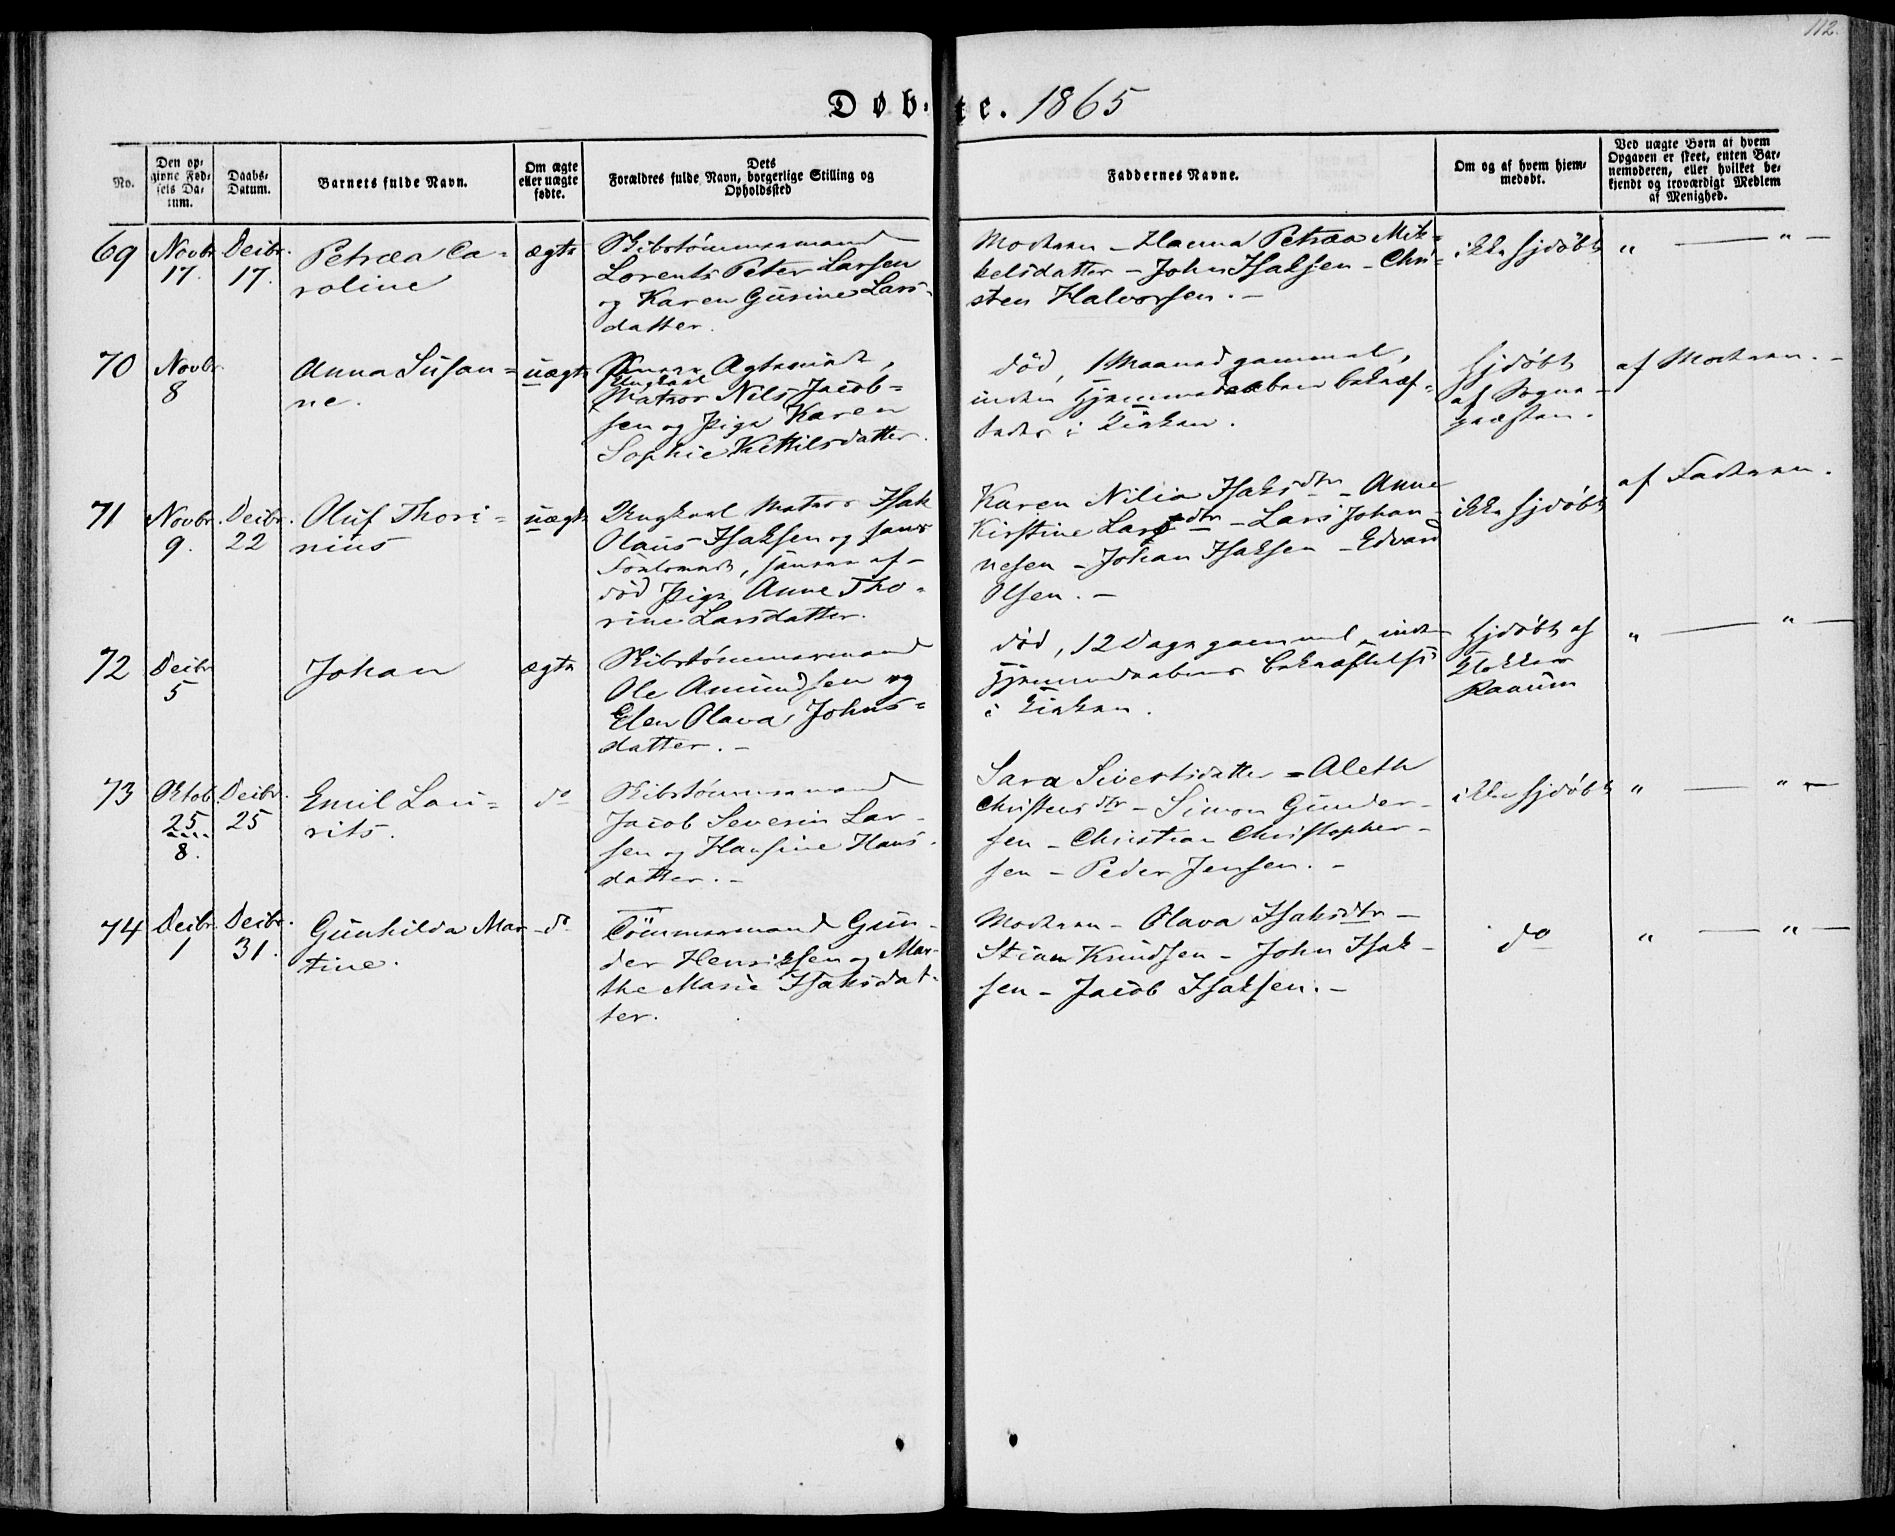 112.
Døbte. 1865
No.
Den opgivne Fødsels Datum.
Daabs-Datum.
Barnets fulde Navn.
Om ægte eller uægte fødte.
Dets Forældres fulde Navn, borgerlige Stilling og Opholdssted
Faddernes Navne.
Om og af hvem hjemmedøbt.
Ved uægte Børn af hvem Opgaven er skeet, enten Barnemoderen, eller hvilket bekjendt og troværdigt Medlem af Menighed.
69
Novbr.
17.
Decbr.
17.
Petræa Ca-
roline
ægte
Skibstømmermand
Lorents Peter Larsen
og Karen Gurine Lars-
datter.
Moderen - Hanna Petræa Mik-
kelsdatter - John Isaksen - Chri-
sten Halvorsen. -
ikke hjdøbt
" — " —
70
Novbr.
8
Anna Susan-
ne.
uægte
Ungkarl
Matros Nils Jacob-
sen og Pige Karen
Sophie Kettilsdatter.
død, 1 Maaned gammel,
inden Hjemmedaaben bekræf-
tedes i Kirken.
Hjdøbt
af Sogne-
præsten.
af Moderen. -
71
Novbr.
9.
Decbr.
22
Oluf Thori-
nius
uægte
Ungkarl Matros Isak
Olaus Isaksen og hans
Forlovede, senere af-
død Pige Anne Tho-
rine Larsdatter.
Karen Nilia Isaksdtr - Anne
Kirstine Larsdtr - Lars Johan-
nesen - Johan Isaksen - Edvard
Olsen. -
ikke hjdøbt
af Faderen.
72
Decbr
5
Johan
ægte
Skibstømmermand
Ole Amundsen og
Elen Olava Johns-
datter. -
død, 12 Dage gammel, inden
Hjemmedaabens bekræftelse
i Kirken.
Hjdøbt af
Klokker
Raaum
" — " —
73
Oktob.
25
8.
Decbr.
25
Emil Lau-
rits.
do
Skibstømmermand
Jacob Severin Lar-
sen og Hansine Hans-
datter. -
Sara Sivertsdatter - Aleth
Christensdtr - Simon Gunder-
sen - Christian Christopher-
sen - Peder Jensen. -
ikke hjdøbt
" — " —
74
Decbr.
1
Decbr.
31.
Gunhilda Mar-
tine.
do
Tömmermand Gun-
der Henriksen og Mar-
the Marie Isaksdat-
ter.
Moderen - Olava Isaksdtr -
Stian Knudsen - John Isak-
sen - Jacob Isaksen. -
do
" — " —